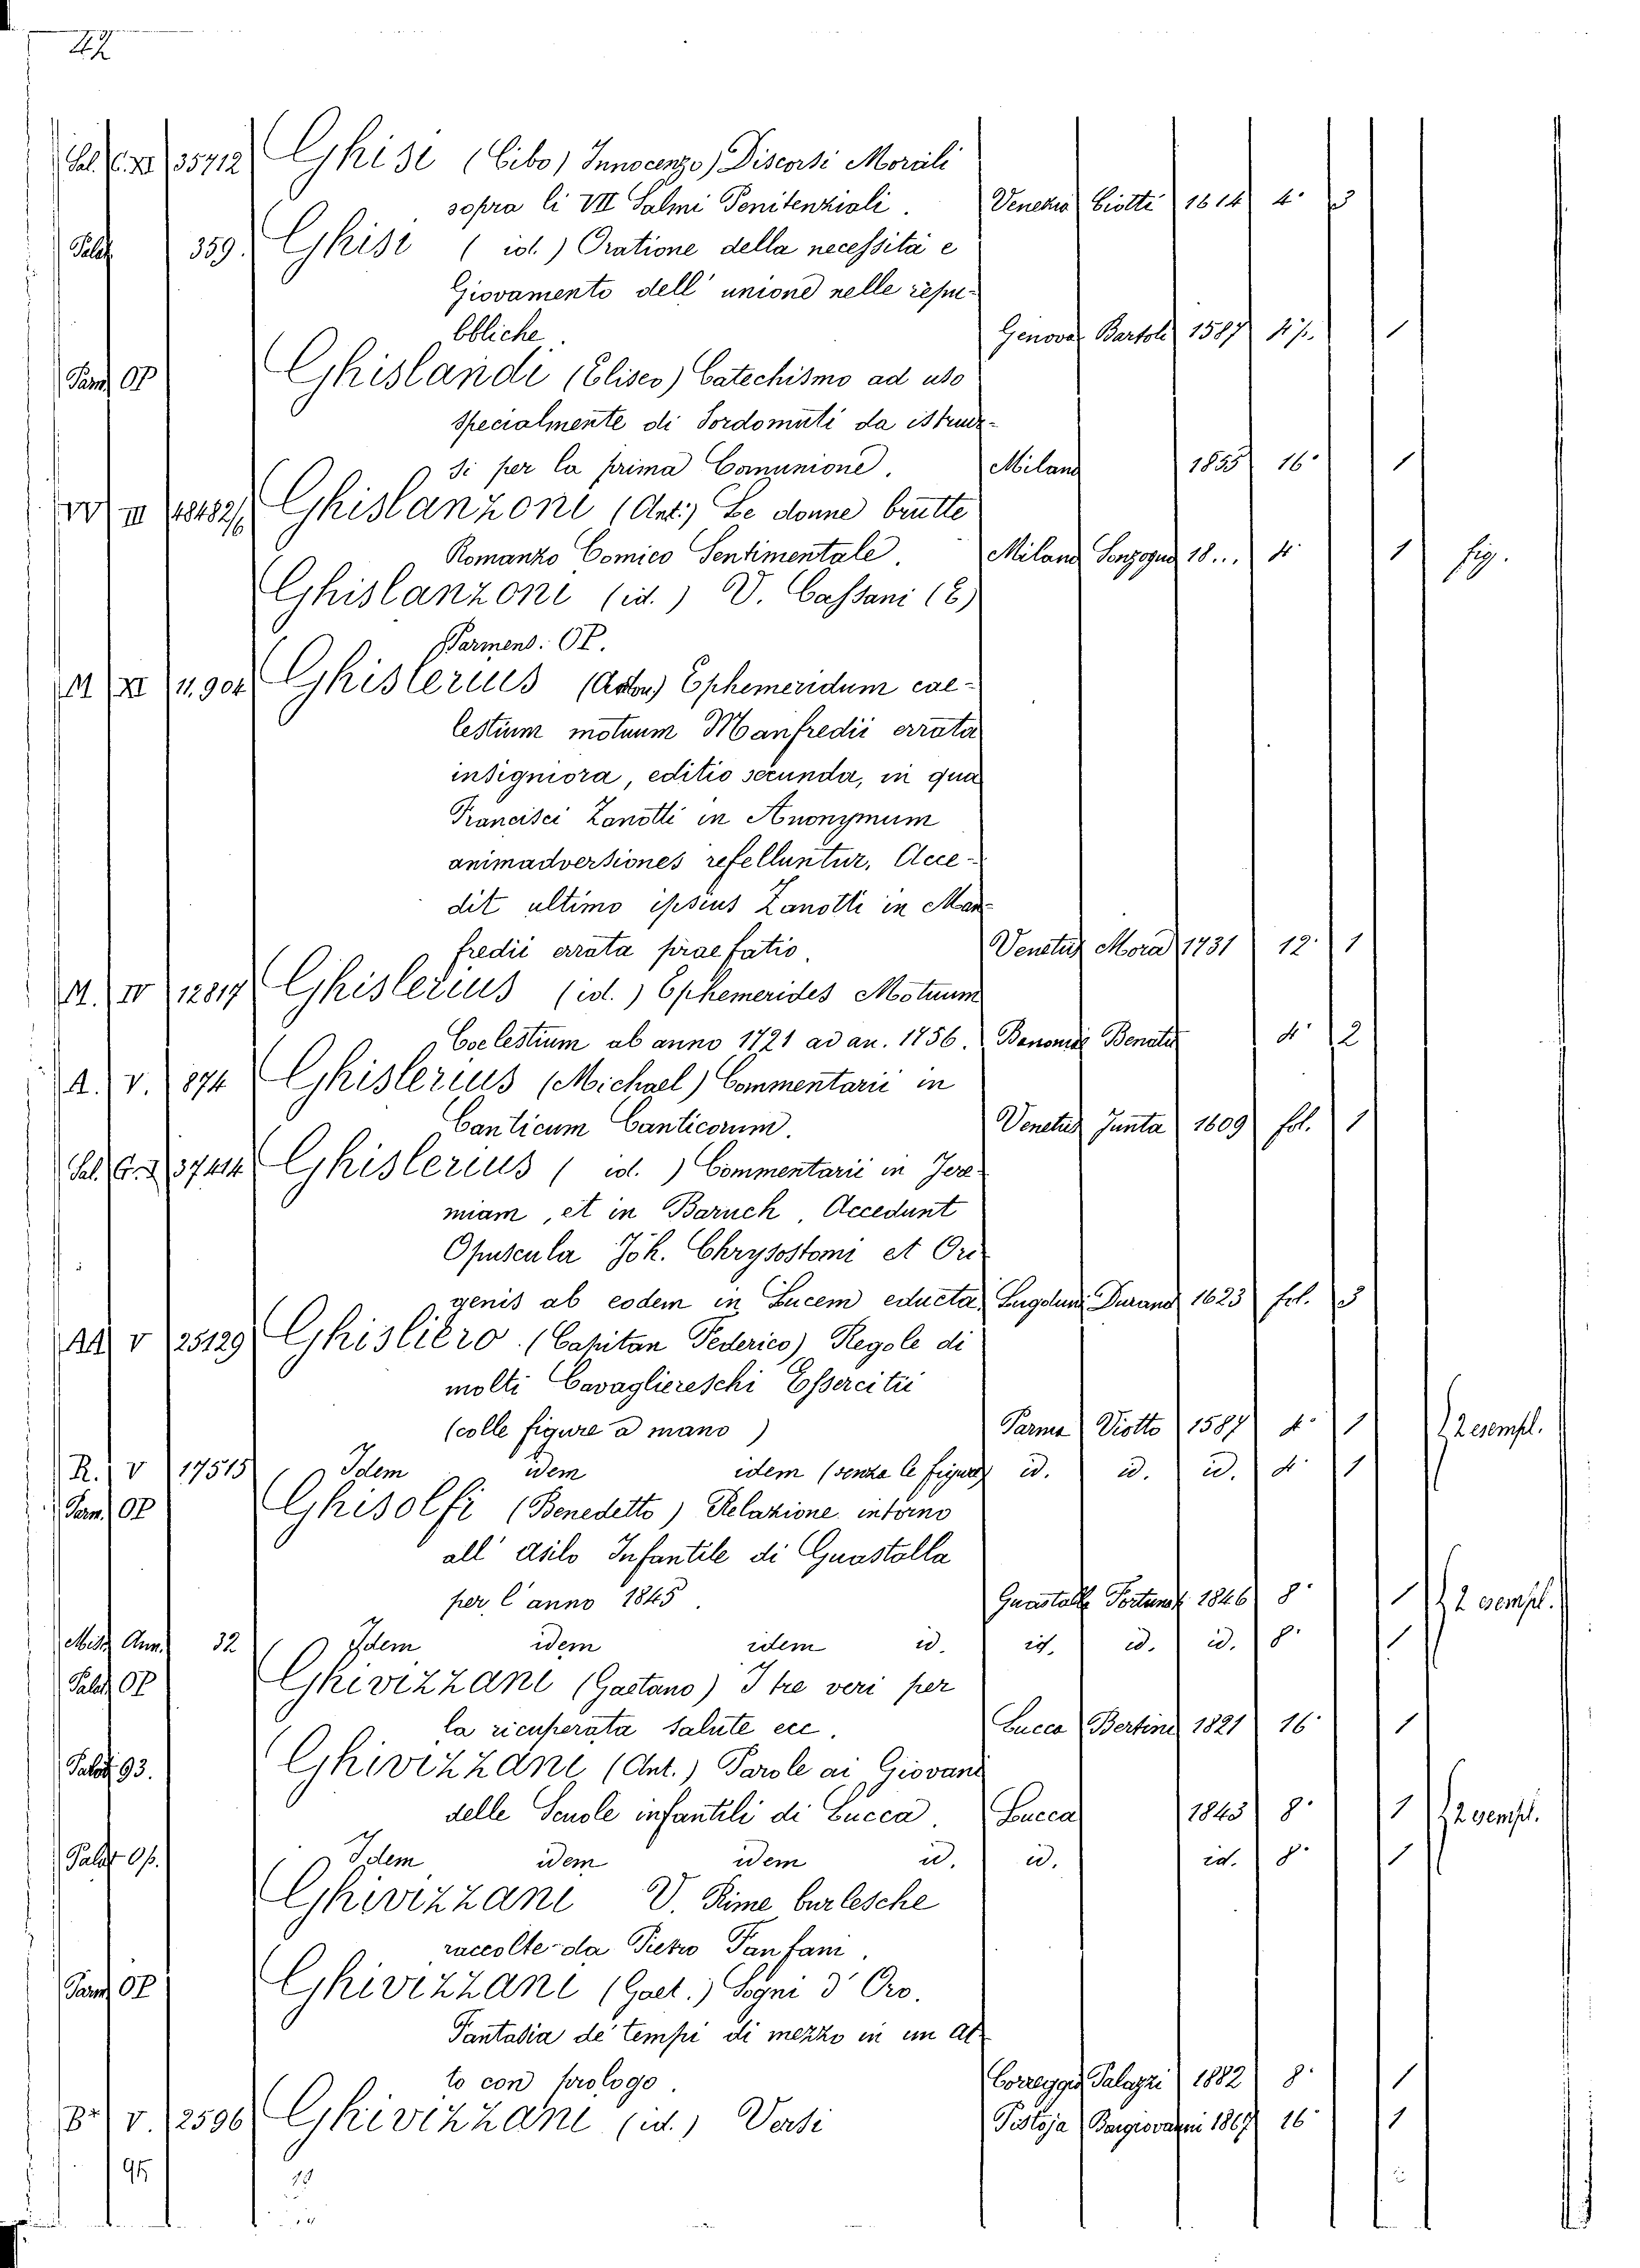 42
Sal. C. XI 35712 Ghisi (Cibo) Innocenzo) Discorsi Morali
sopra li VII Salmi Penitenziali. Venezia Ciotti 1614 4° 3
Palat 359. Ghisi (id.) Oratione della necessità e
Giovamento dell' unione nelle repu-
bbliche. Genova Bartoli 1587 4°p. 1
Parm OP Ghislandi (Eliseo) Catechismo ad uso
specialmente di Sordomuti da istruir-
si per la prima Comunione. Milano 1855 16° 1
VV III 18482/6 Ghislanzoni (Ant.) Le donne brutte
Romanzo Comico Sentimentale. Milano Sonzogno 18... 4° 1 fig.
Ghislanzoni (id.) V. Cassani (E)
Parmens: OP.
M XI 11.904 Ghislerius (Anton) Ephemeridum cae-
lestium motuum Manfredii errata
insigniora, editio secunda, in qua
Francisci Zanotti in Anonymum
animadversiones refelluntur, Acce-
dit ultimo ipsius Zanotti in Man-
fredii errata praefatio. Venetiis Mora 1731 12° 1
M. IV 12817 Ghislerius (id.) Ephemerides Motuum
Coelestium ab anno 1721 ad an. 1756. Bononiae Benatii 4° 2
A. V. 874 Ghislerius (Michael) Commentarii in
Canticum Canticorum. Venetiis Junta 1609 fol. 1
Sal. 37414 Ghislerius (id.) Commentarii in Jere-
miam, et in Baruch. Accedunt
Opuscula Joh. Chrysostomi et Ori-
genis ab eodem in Lucem educta. Lugduni Durand 1623 fol. 3
AA V 25129 Ghisliero (Capitan Federico) Regole di
molti Cavagliereschi Essercitii
(colle figure a mano) Parma Viotto 1587 4° 1 2 esempl.
R. V 17515 Idem idem idem (senza le figure) id. id. id. 4° 1
Parm. OP Ghisolfi (Benedetto) Relazione intorno
all' Asilo Infantile di Guastalla
per l'anno 1845. Guastalla Fortunat. 1846 8° 1 2 esempl.
Misc. Ann. 32 Idem idem idem id. id. id. id. 8° 1
Palat OP Ghivizzani (Gaetano) I tre veri per
la ricuperata salute ecc. Lucca Bertini 1821 16° 1
Palat 93. Ghivizzani (Ant.) Parole ai Giovani
delle Scuole infantili di Lucca. Lucca 1843 8° 1 2 esempl.
Palat Op. Idem idem idem id. id. id. 8° 1
Ghivizzani V. Rime burlesche
raccolte da Pietro Fanfani.
Parm OP Ghivizzani (Gaet.) Sogni d'Oro.
Fantasia de' tempi di mezzo in un At-
to con prologo. Correggio Palazzi 1882 8° 1
V. 2596 Ghivizzani (id.) Versi Pistoja 1867 16° 1